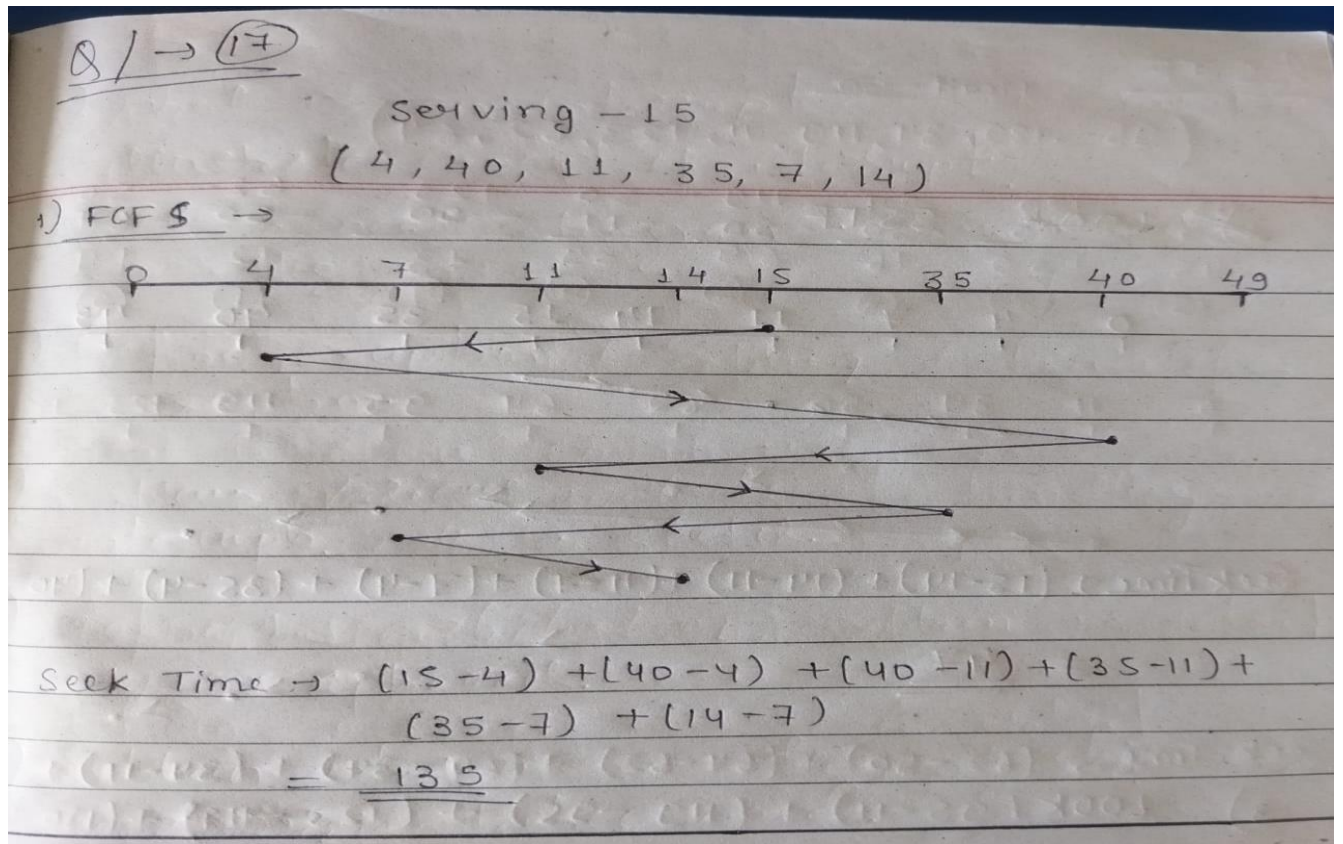 Q1 → 17
Serving - 15
(4, 40, 11, 35, 7, 14)
1) FCFS →
0 4 7 11 14 15 35 40 49
Seek Time → (15-4) + (40-4) + (40-11) + (35-11) +
(35-7) + (14-7)
= 135